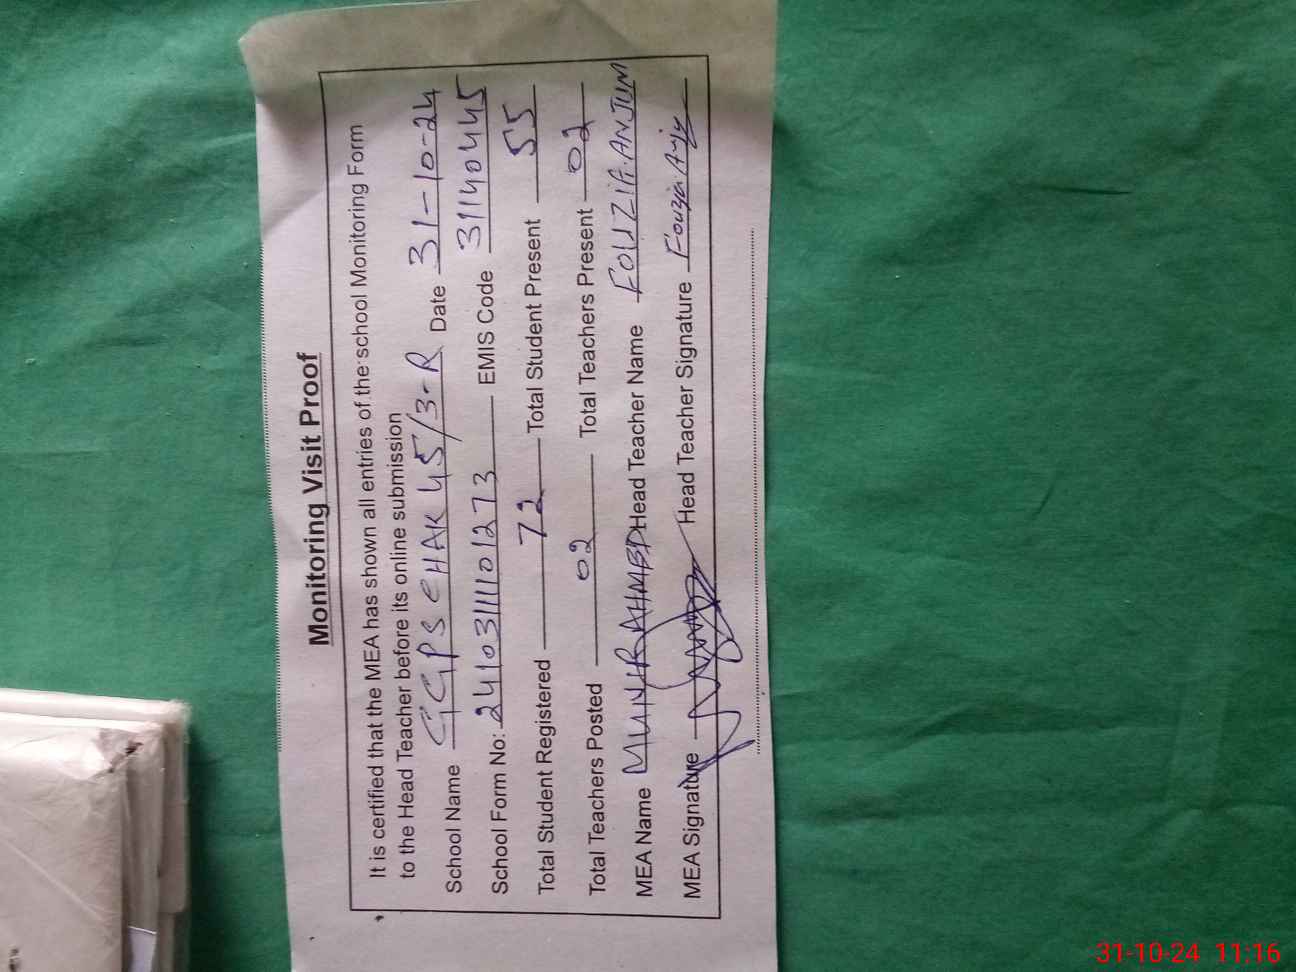 Monitoring Visit Proof
It is certified that the MEA has shown all entries of the school Monitoring Form
to the Head Teacher before its online submission
School Name GGPS CHAK 45/3-R Date 31-10-24
School Form No: 2410311101273 EMIS Code 31140445
Total Student Registered 72 Total Student Present 55
Total Teachers Posted 02 Total Teachers Present 02
MEA Name MUNIR AHMED Head Teacher Name FOUZIA ANJUM
MEA Signature Head Teacher Signature Fouzia Anju
31-10-24 11:16